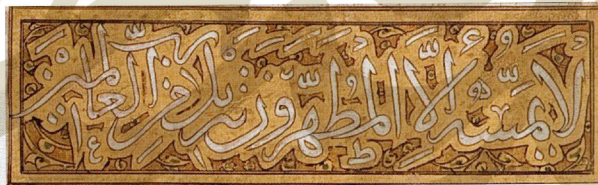 لا يمسه إلا المطهرون تنزيل من رب العالمين